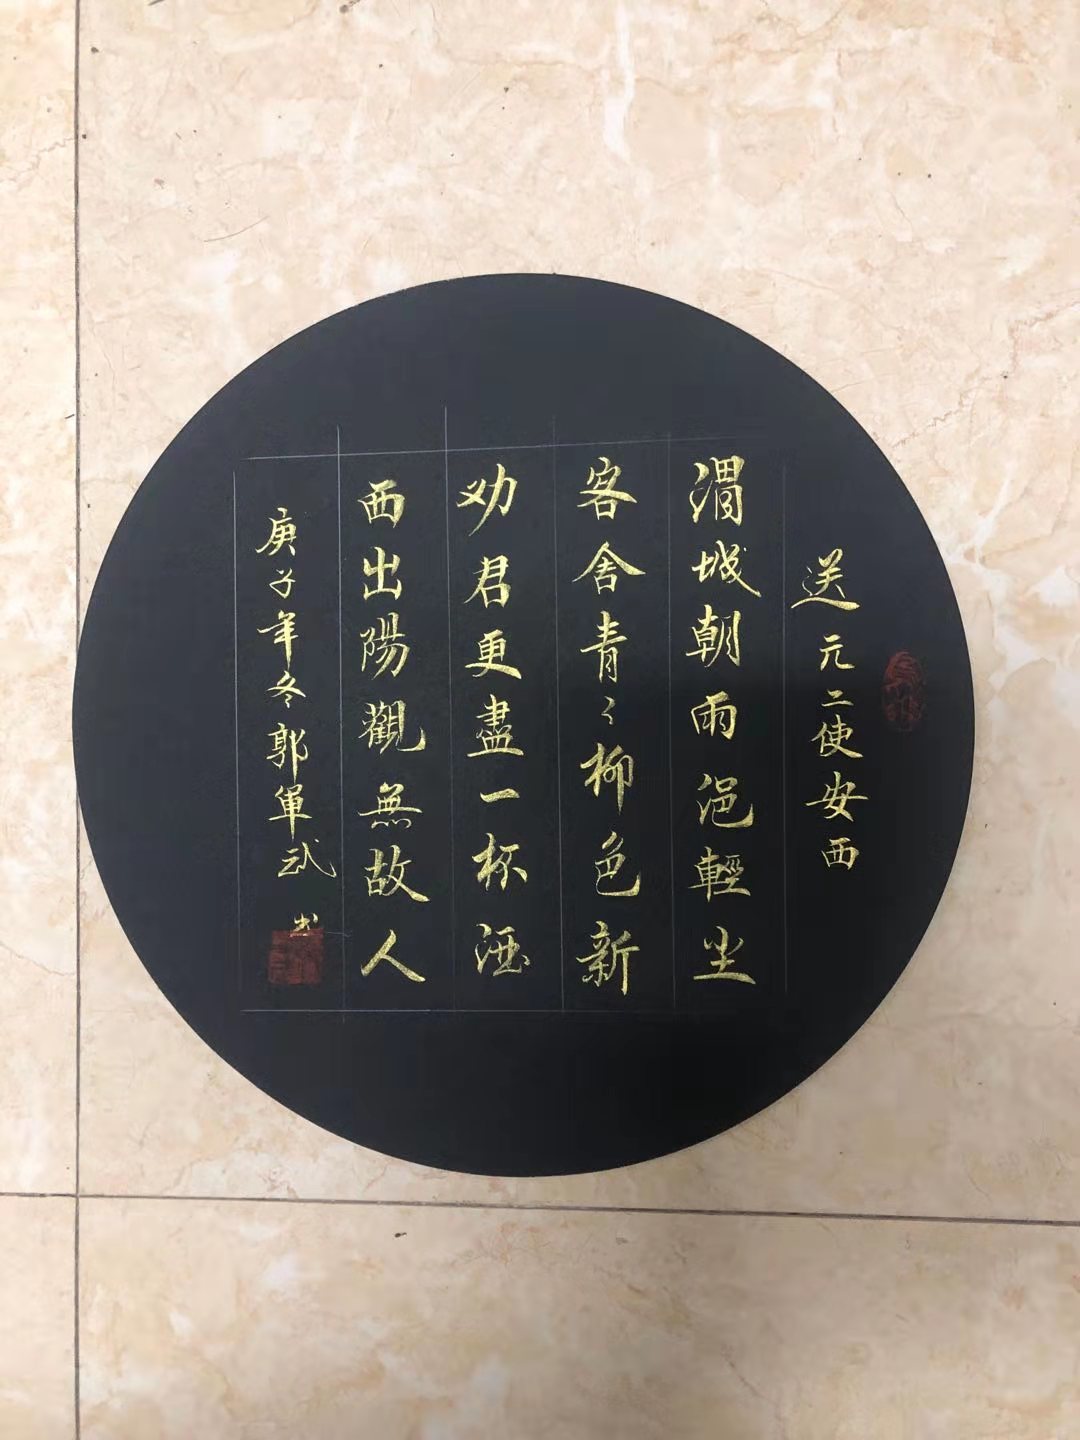 送元二使安西
渭城朝雨浥輕尘
客舍青々柳色新
劝君更盡一杯酒
西出陽觀無故人
庚子年冬郭軍武書